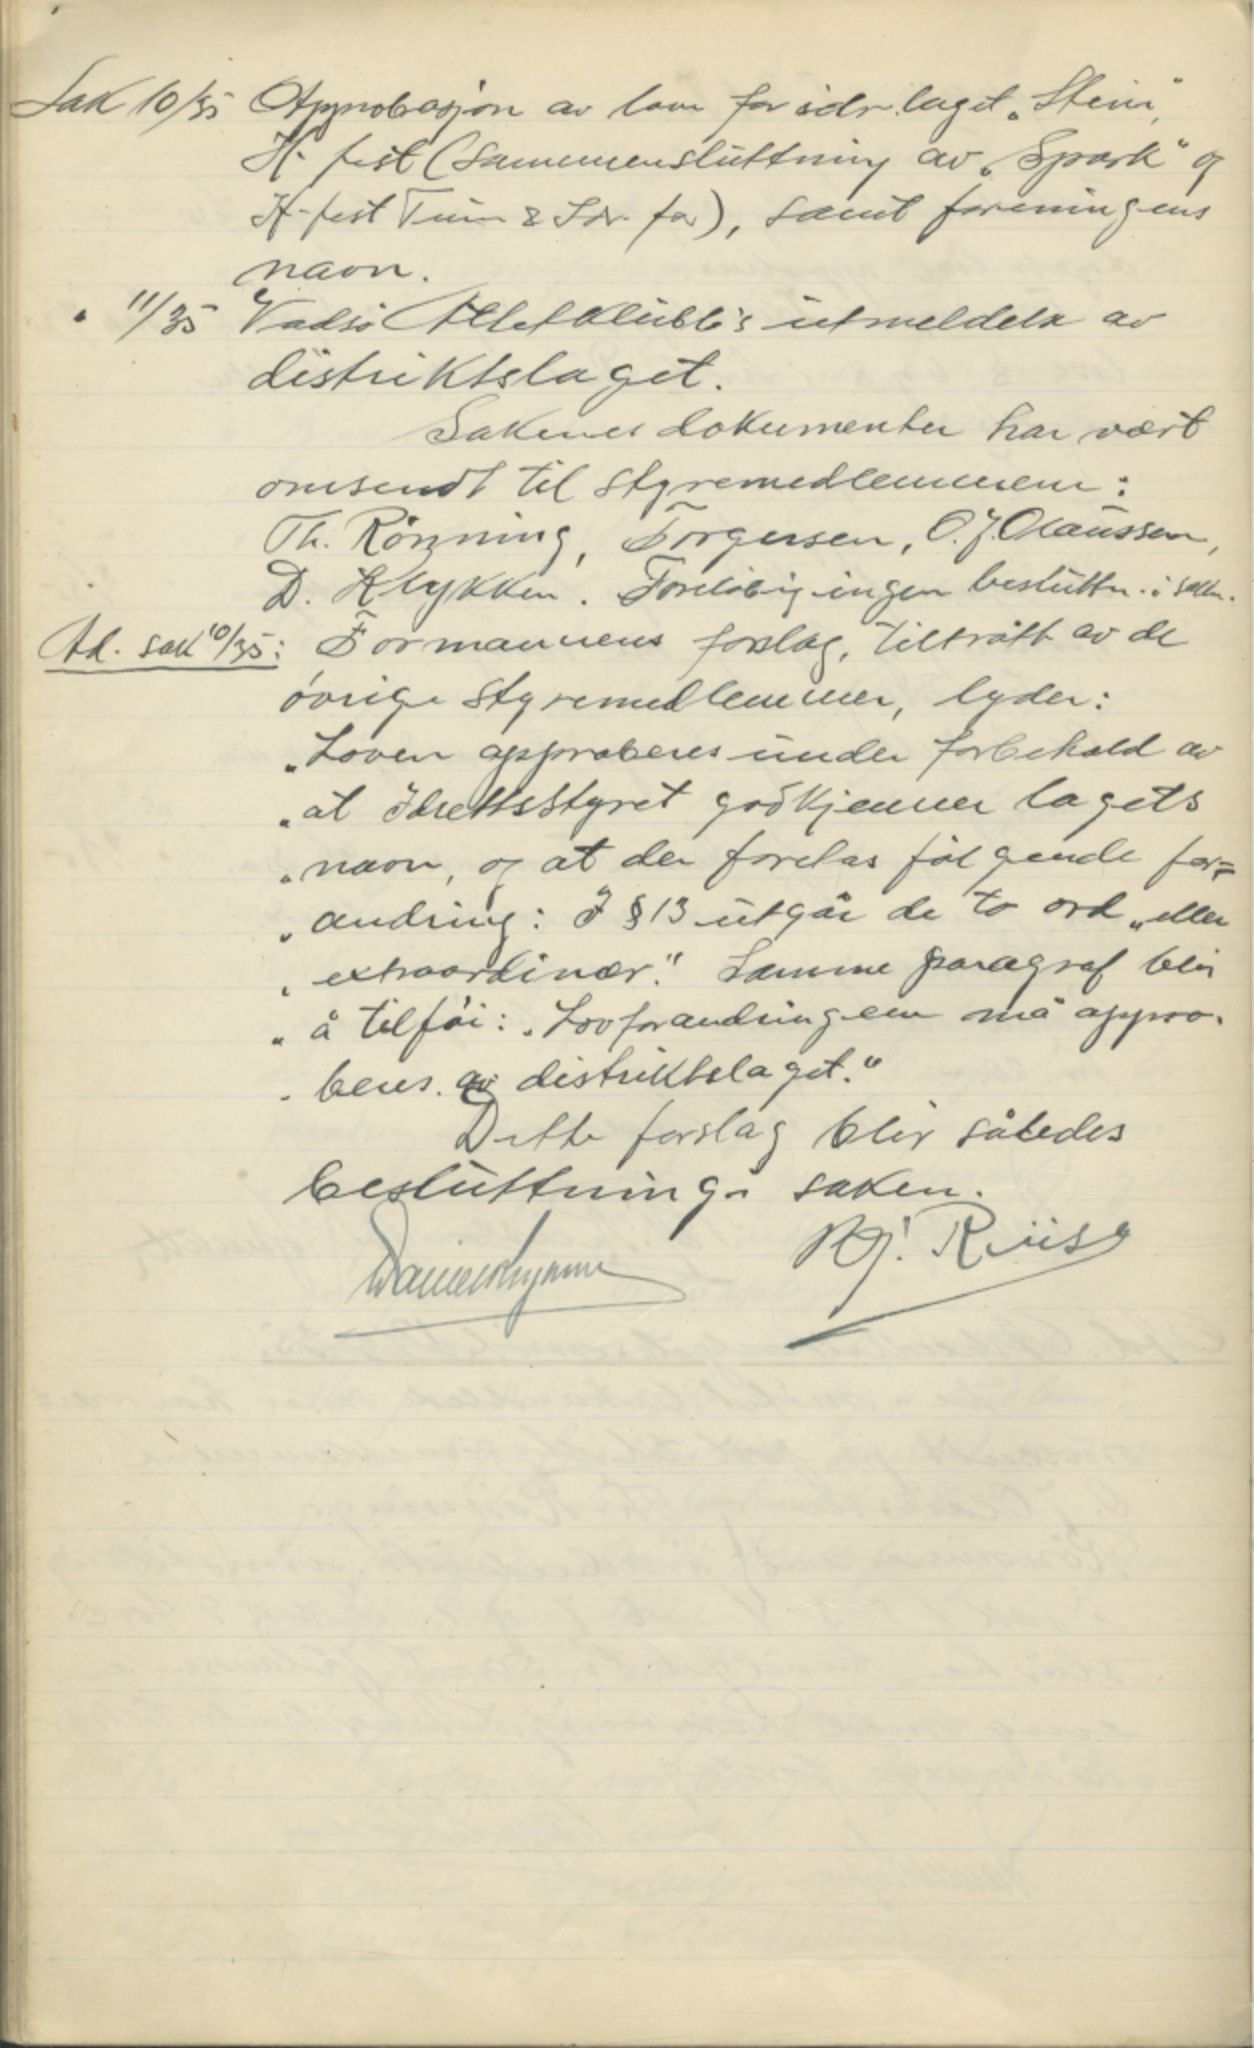 Sak 10/35 Approbasjon av lov for idr.laget „Stein",
H-fest (Sammenslutning av „Spark" og
H-fest Turn & Idr. for), samt foreningens
navn.
" 11/35 Vadsö Atletklubb's utmeldelse av
distriktslaget.
Sakenes dokumenter har vært
omsendt til styremedlemmene:
Th. Rönning, Torgersen, O. J. Olaussen,
D. Klykken. Foreløbig ingen beslutn. i saken.
Ad. sak 10/35: Formannens forslag, tiltrått av de
övrige styremedlemmer, lyder:
„Loven approberes under forbehold av
„at Idrettsstyret godkjenner lagets
„navn, og at der foretas fölgende for=
„andring: I § 13 utgår de to ord „eller
„extraordinær". Samme paragraf blir
„å tilföi: „Lovforandringen må appro-
„beres av distriktslaget."
Dette forslag blir således
beslutning i saken.
Bj. Riise